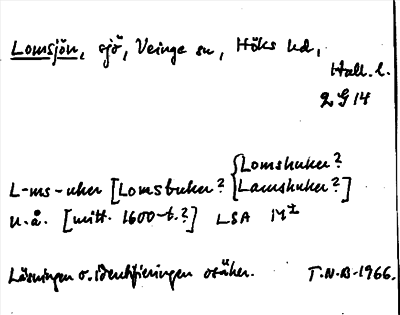 Lomsjön, sjö, Veinge sn, Höks hd,
Hall. l.
2 G 14
Lomshuker?
L-ms-uker [Lomsbuker? Lamshuker?]
u.å. [mitt. 1600-t.?] LSA
Läsningen o. identifieringen osäker. T.N.B-1966.